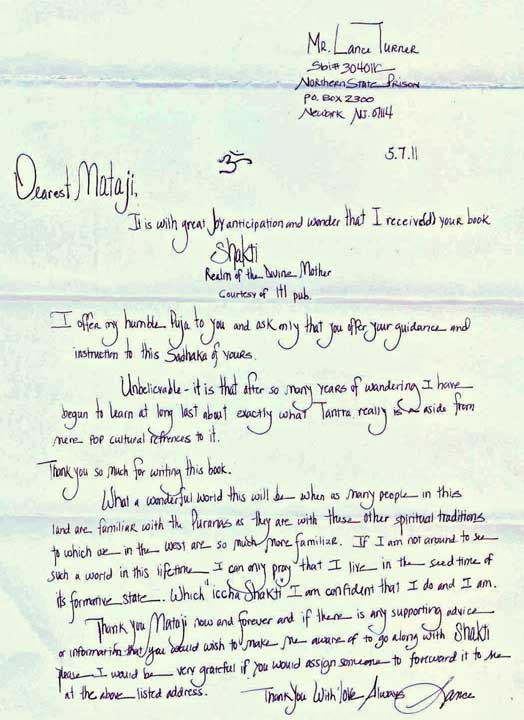 Mr. Lance Turner
Sbi# 304011C
Northern State Prison
P.O. Box 2300
Newark NJ. 07114
ॐ
5.7.11
Dearest Mataji,
It is with great joy anticipation and wonder that I receive(d) your book
Shakti
Realm of the Divine Mother
Courtesy of ITI pub.
I offer my humble Puja to you and ask only that you offer your guidance and
instruction to this Sadhaka of yours.
Unbelievable - it is that after so many years of wandering I have
begun to learn at long last about exactly what Tantra really is aside from
mere pop cultural refrences to it.
Thank you so much for writing this book.
What a wonderful world this will be when as many people in this
land are familiar with the Puranas as they are with these other spiritual traditions
to which we in the west are so much more familiar. If I am not around to see
such a world in this lifetime I can only pray that I live in the seed time of
its formative state. Which "iccha Shakti I am confident that I do and I am.
Thank you Mataji now and forever and if there is any supporting advice
or information that you would wish to make me aware of to go along with Shakti
please I would be very grateful if you would assign someone to foreward it to me
at the above listed address.
Thank you With love Always Lance